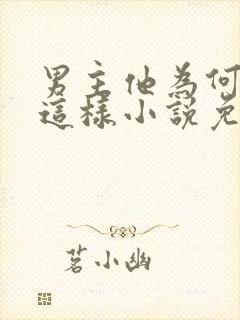 男主他為何
這樣小說免
茗小幽